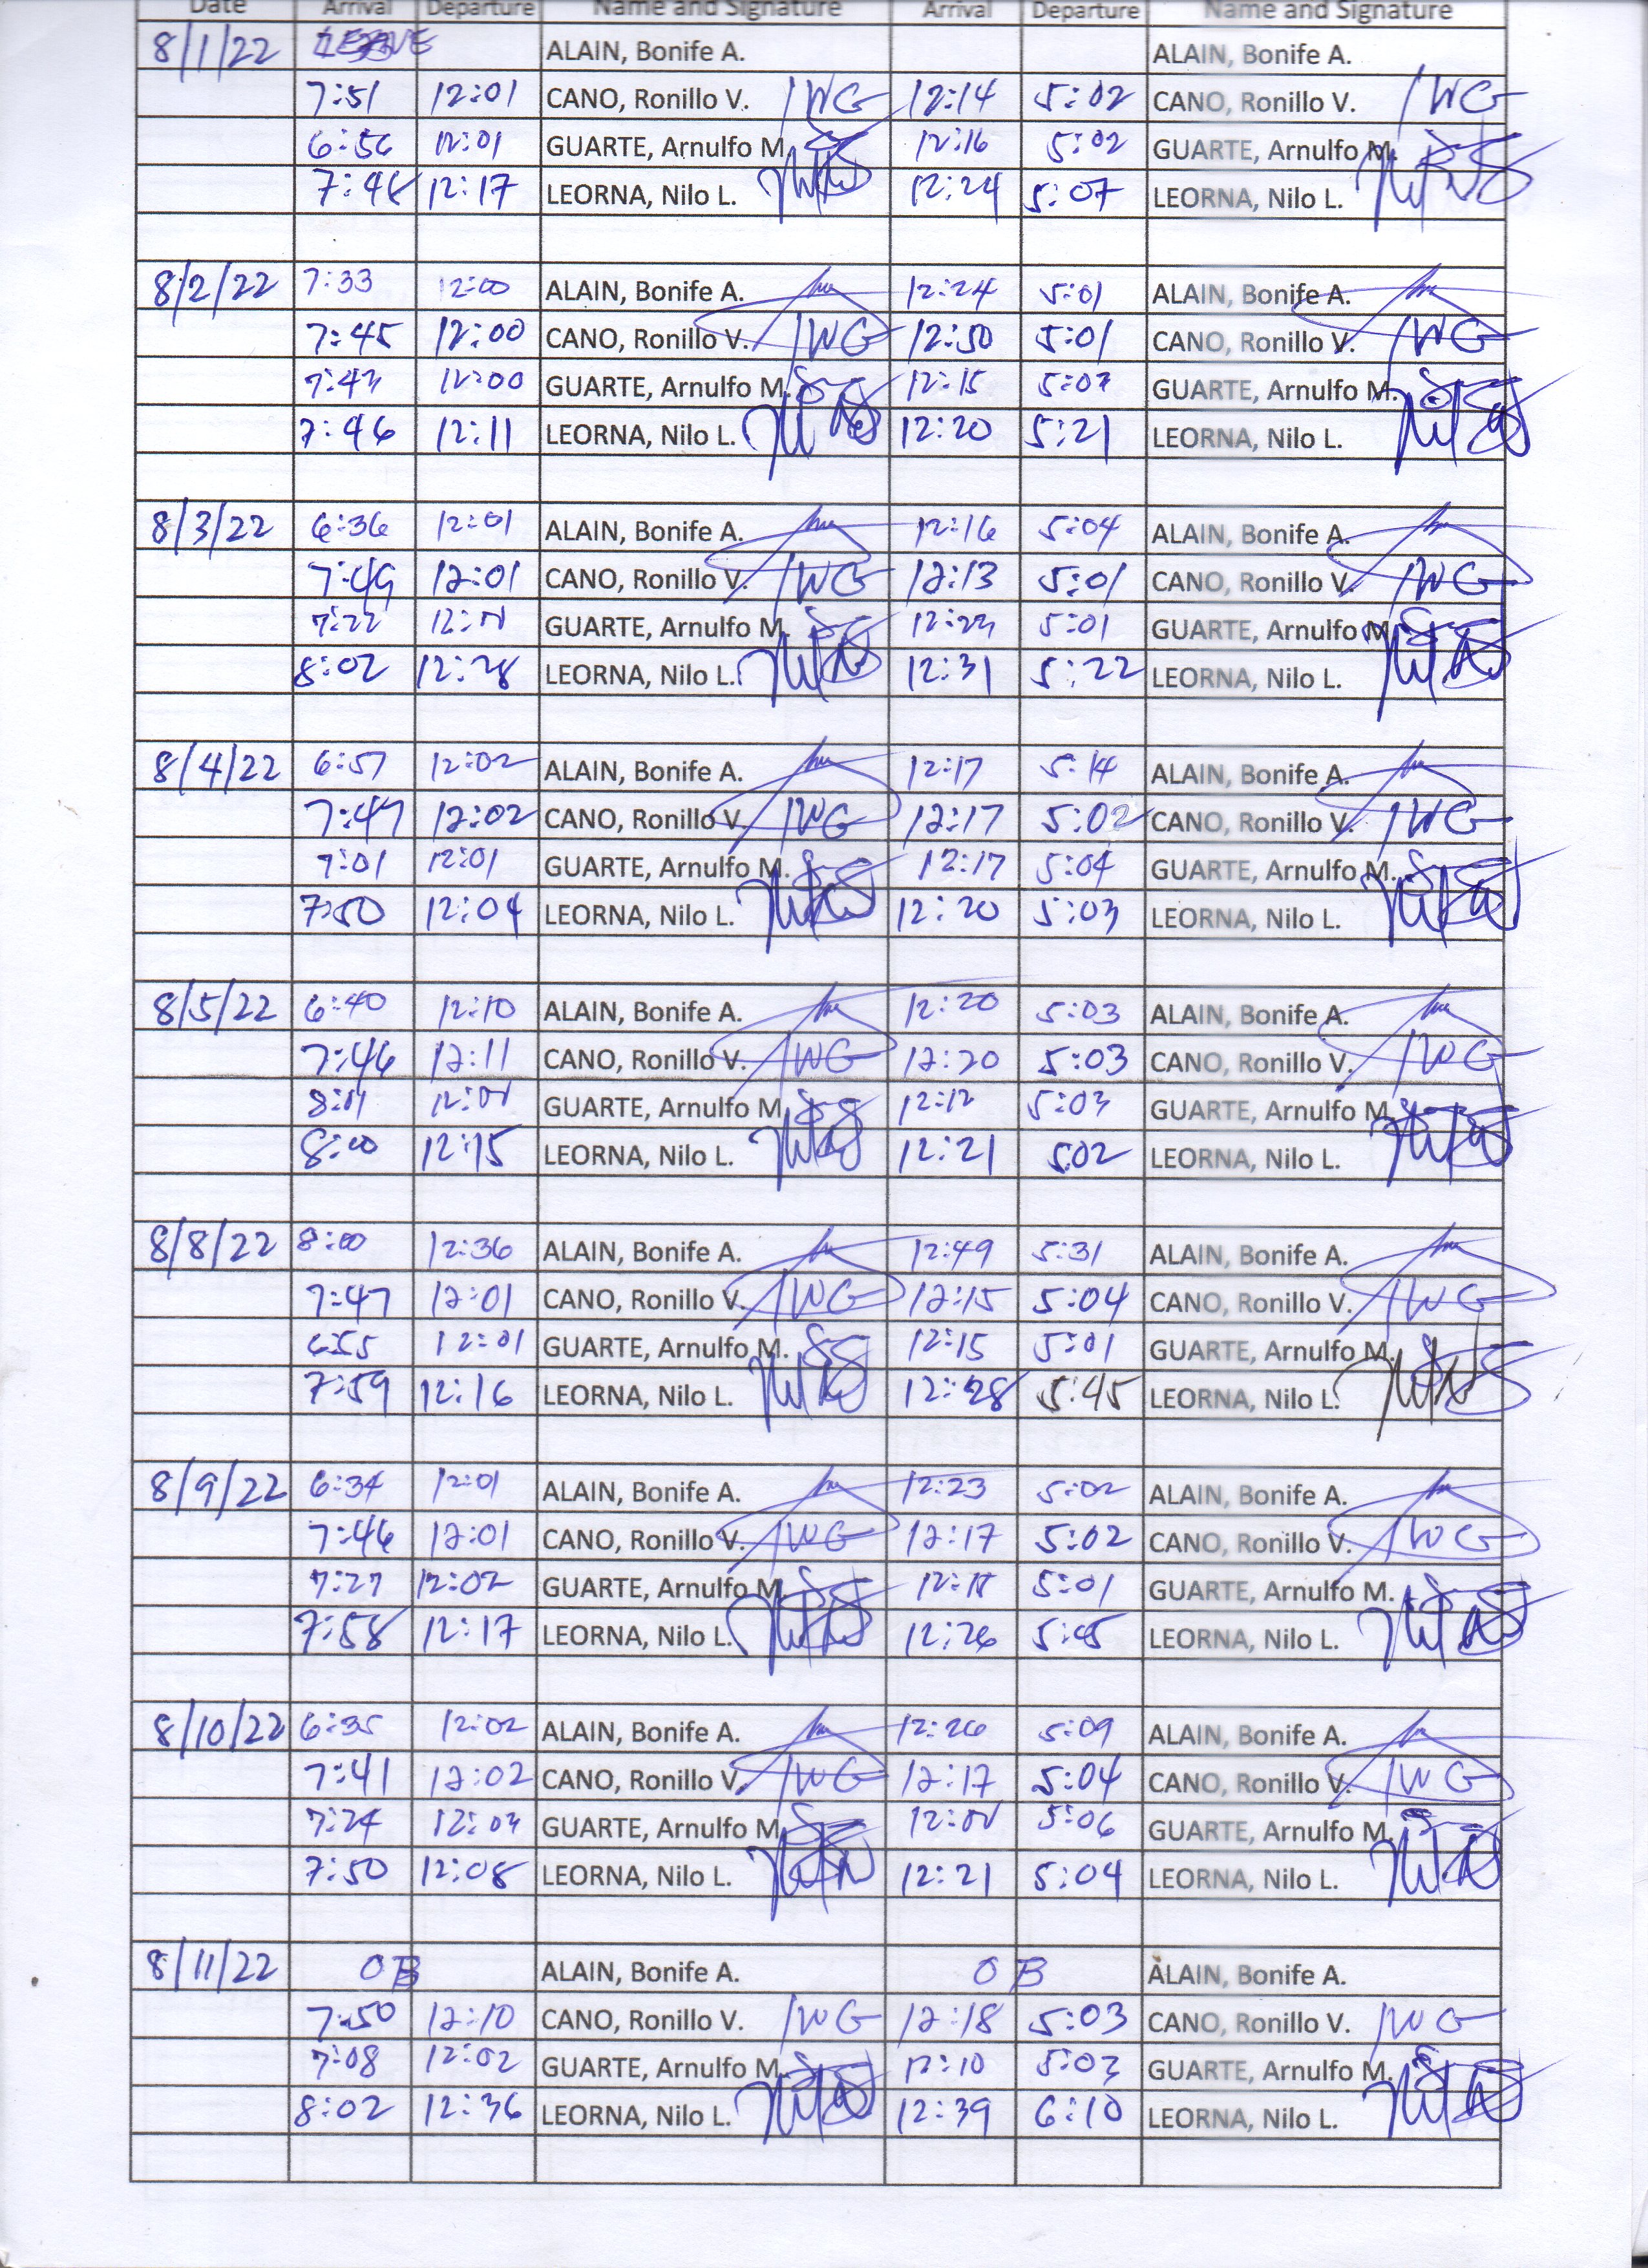 Date Arrival Departure Name and Signature Arrival Departure Name and Signature
8/1/22 LEAVE ALAIN, Bonife A. ALAIN, Bonife A.
7:51 12:01 CANO, Ronillo V. 12:14 5:02 CANO, Ronillo V.
6:56 12:01 GUARTE, Arnulfo M. 12:16 5:02 GUARTE, Arnulfo M.
12:17 LEORNA, Nilo L. 12:24 5:07 LEORNA, Nilo L.
8/2/22 7:33 12:00 ALAIN, Bonife A. 12:24 5:01 ALAIN, Bonife A.
7:45 12:00 CANO, Ronillo V. 12:50 5:01 CANO, Ronillo V.
7:43 12:00 GUARTE, Arnulfo M. 12:15 5:07 GUARTE, Arnulfo M.
7:46 12:11 LEORNA, Nilo L. 12:20 5:21 LEORNA, Nilo L.
8/3/22 6:36 12:01 ALAIN, Bonife A. 12:16 5:04 ALAIN, Bonife A.
7:49 12:01 CANO, Ronillo V. 12:13 5:01 CANO, Ronillo V.
7:22 GUARTE, Arnulfo M. 12:23 5:01 GUARTE, Arnulfo M.
8:02 12:28 LEORNA, Nilo L. 12:31 5:22 LEORNA, Nilo L.
8/4/22 6:57 12:02 ALAIN, Bonife A. 12:17 5:14 ALAIN, Bonife A.
7:47 12:02 CANO, Ronillo V. 12:17 5:02 CANO, Ronillo V.
7:01 12:01 GUARTE, Arnulfo M. 12:17 5:04 GUARTE, Arnulfo M.
7:50 12:04 LEORNA, Nilo L. 12:20 5:03 LEORNA, Nilo L.
8/5/22 6:40 12:10 ALAIN, Bonife A. 12:20 5:03 ALAIN, Bonife A.
7:46 12:11 CANO, Ronillo V. 12:20 5:03 CANO, Ronillo V.
GUARTE, Arnulfo M. 12:12 5:03 GUARTE, Arnulfo M.
8:00 12:15 LEORNA, Nilo L. 12:21 5:02 LEORNA, Nilo L.
8/8/22 8:00 12:36 ALAIN, Bonife A. 12:49 5:31 ALAIN, Bonife A.
7:47 12:01 CANO, Ronillo V. 12:15 5:04 CANO, Ronillo V.
6:55 12:01 GUARTE, Arnulfo M. 12:15 5:01 GUARTE, Arnulfo M.
7:59 12:16 LEORNA, Nilo L. 12:28 5:45 LEORNA, Nilo L.
8/9/22 6:34 12:01 ALAIN, Bonife A. 12:23 5:02 ALAIN, Bonife A.
7:46 12:01 CANO, Ronillo V. 12:17 5:02 CANO, Ronillo V.
7:27 12:02 GUARTE, Arnulfo M. 5:01 GUARTE, Arnulfo M.
7:58 12:17 LEORNA, Nilo L. 12:26 5:45 LEORNA, Nilo L.
8/10/22 6:35 12:02 ALAIN, Bonife A. 12:26 5:09 ALAIN, Bonife A.
7:41 12:02 CANO, Ronillo V. 12:17 5:04 CANO, Ronillo V.
7:24 12:03 GUARTE, Arnulfo M. 5:06 GUARTE, Arnulfo M.
7:50 12:08 LEORNA, Nilo L. 12:21 5:04 LEORNA, Nilo L.
8/11/22 OB ALAIN, Bonife A. OB ALAIN, Bonife A.
7:50 12:10 CANO, Ronillo V. 12:18 5:03 CANO, Ronillo V.
7:08 12:02 GUARTE, Arnulfo M. 12:10 5:03 GUARTE, Arnulfo M.
8:02 12:36 LEORNA, Nilo L. 12:39 6:10 LEORNA, Nilo L.